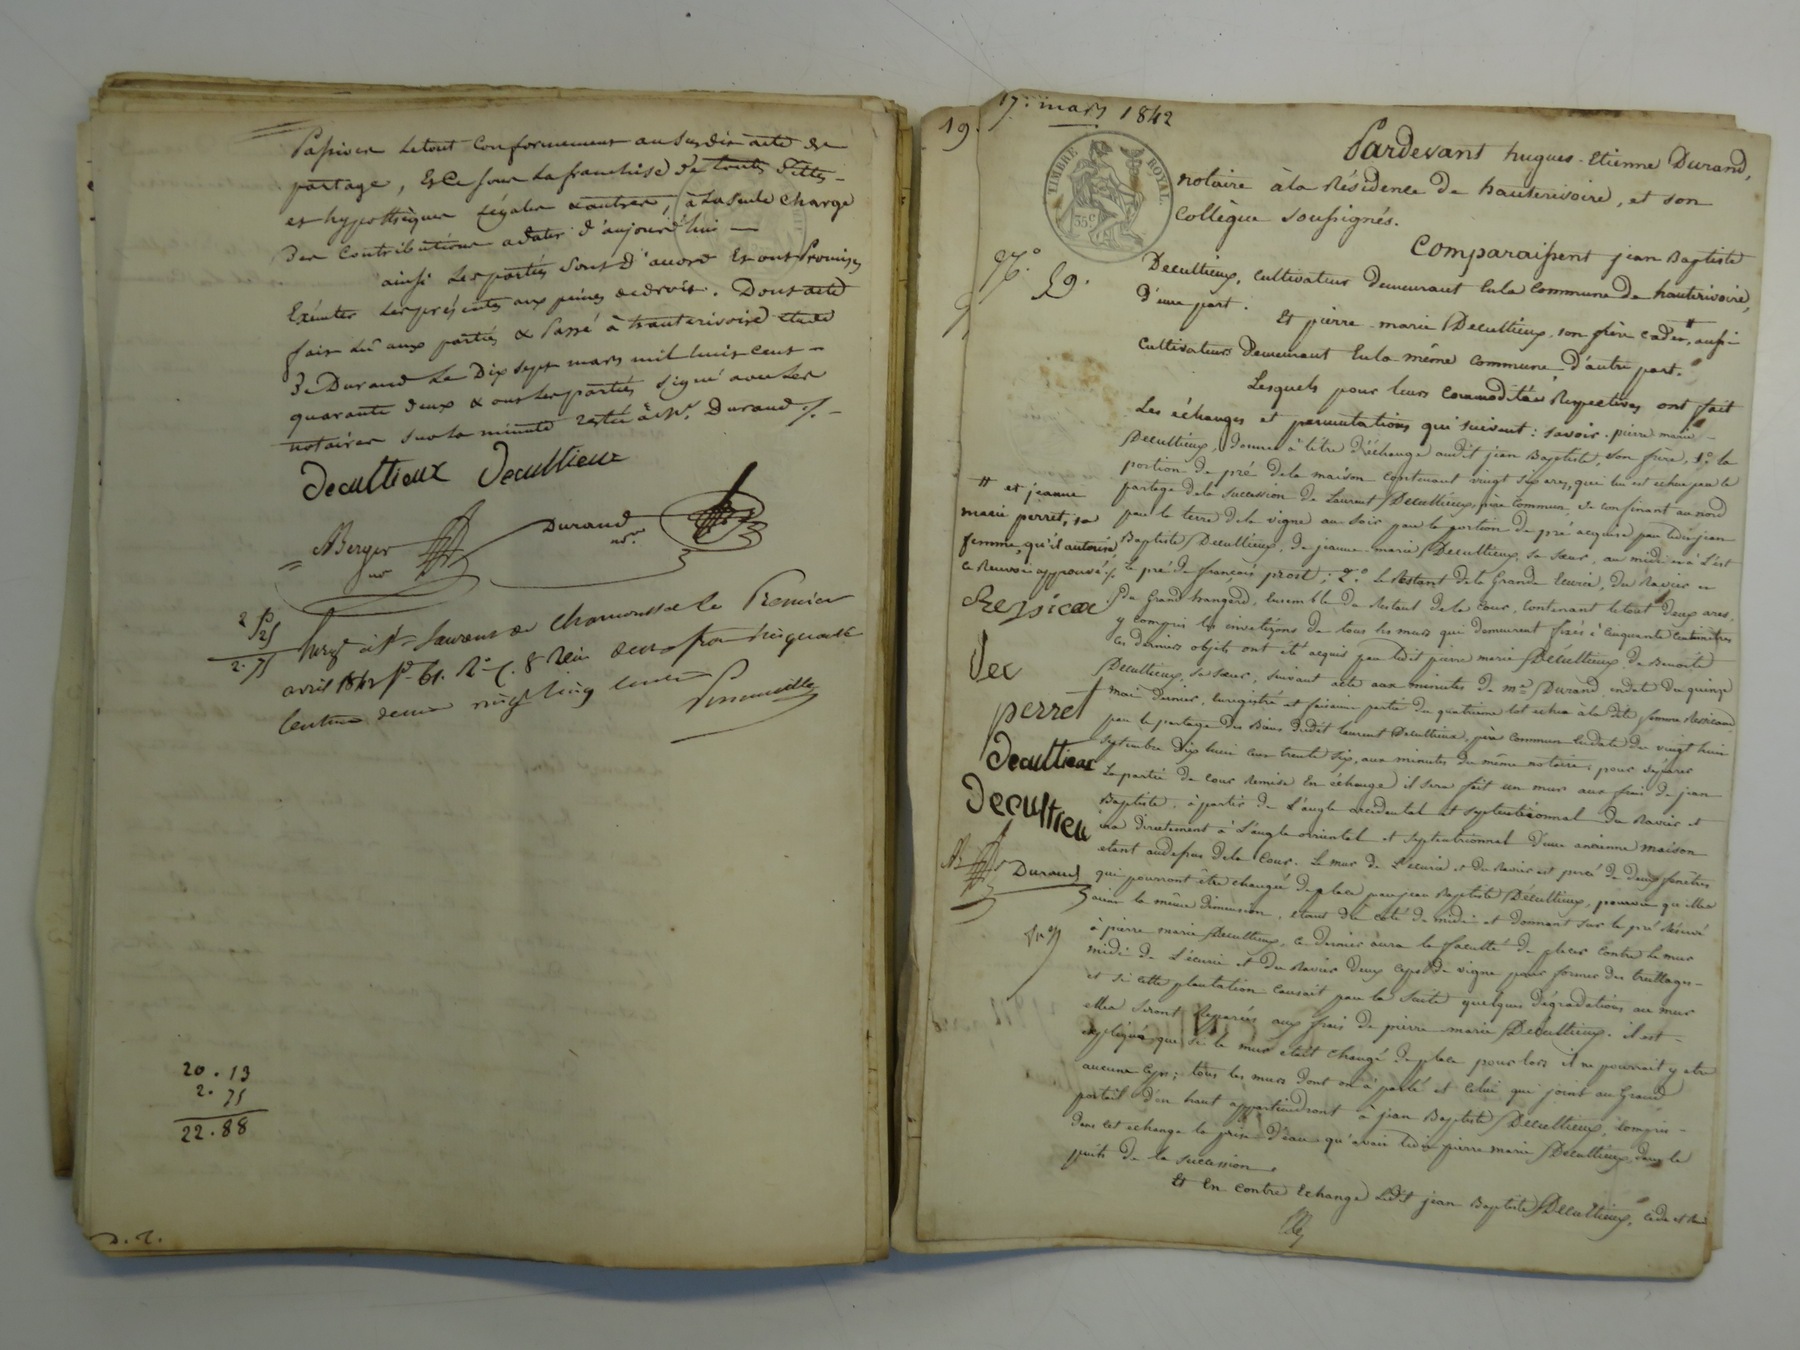 passives le tout conformement au susdit acte de
partage, Et ce sous la franchise de toutes dettes
et hypothèques légales & autres, à la seule charge
des contributions à dater d'aujourd'hui —
ainsi les parties sont d'accord Et ont Promis
Exécuter les présentes aux peines de droit. Dont acte
fait lû aux parties & Passé à hauterivoire etude
De Durand Le Dix sept mars mil huit cent —
quarante deux & ont les parties signé avec les
notaires sur la minute restée à Me Durand
Decultieux Decultieux
ABerger nre
Durand nre
2 P
25
2.75
Enrgé à St Laurent de Chamousset le Premier
avril 1842 fo 61. Ro C. 8 Reçu deux francs cinquante
centimes decime vingt cinq centimes
20.13
2.75
22.88
D. T.
19.
17. mars 1842
TIMBRE ROYAL
35c
Pardevant hugues-Etienne Durand,
notaire à la Résidence de hauterivoire, et son
Collègue soussignés.
Comparaissent jean Baptiste
Decultieux, cultivateur demeurant En la Commune de hauterivoire,
d'une part.
59.
Et pierre-marie Decultieux, son frère cadet, # aussi
cultivateur Demeurant En la même commune, d'autre part.
Lesquels pour leurs commodités Respectives ont fait
Les échanges et permutations qui suivent: savoir. pierre marie
Decultieux, donne à titre d'échange audit jean Baptiste, son frère, 1.o la
portion de pré de la maison contenant vingt six ares, qui lui est echue par le
partage de la succession de Laurent Decultieux, père commun, se confinant au nord
par la terre de la vigne au soir par la portion de pré acquise par ledit jean
Baptiste Decultieux, de jeanne-marie Decultieux, sa sœur, au midi et à l'est
le pré de françois prost; 2.o le Restant de la Grande Ecurie, du Ravier et
du Grand hangard, Ensemble du Restant de la Cour, contenant le tout deux ares,
y compris les investizons de tous les murs qui demeurent fixés à cinquante centimètres
ces derniers objets ont été acquis par ledit pierre marie Decultieux de Benoite
Decultieux, sa sœur, suivant acte aux minutes de me Durand, en date du quinze
mai dernier, enregistré et faisaient partie du quatrième lot echu à la dite femme Ressicaud
par le partage des Biens dudit Laurent Decultieux, père commun En date du vingt huit
septembre dix huit cent trente six, aux minutes du même notaire; pour séparer
La partie de cour Remise En échange il sera fait un mur aux frais de jean
Baptiste, à partir de l'angle occidental et septentrionnal du Ravier et
ira directement à l'angle orriental et septentrionnel d'une ancienne maison
etant au dessus de la Cour. Le mur de l'écurie et du Ravier est percé de deux fenêtres
qui pourront être changées de place par jean Baptiste Décultieux, pourvu qu'elles
aient la même dimension, etant du coté de midi et donnant sur le pré Réservé
à pierre marie Decultieux, ce dernier aura la faculté de placer contre le mur
midi de l'écurie et du Ravier deux ceps de vigne pour former des treillages —
et si cette plantation causait par la suite quelques dégradations au mur
elles seront Réparées aux frais de pierre marie Décultieux. il est —
expliqué que si le mur etait changé de place pour lors il ne pourrait y etre
aucuns Ceps; tous les murs dont on a parlé et celui qui joint au Grand
portail d'en haut appartiendront à jean Baptiste Decultieux, compris —
dans cet echange la prise d'eau qu'avait ledit pierre marie Decultieux, dans le
puits de la succession.
Et En contre Echange Ledit jean Baptiste Decultieux, cède et
# et jeanne
marie perret, sa
femme, qu'il autorise,
ce Renvoi approuvé
perret
Decultieux
Decultieu
AB
Durand